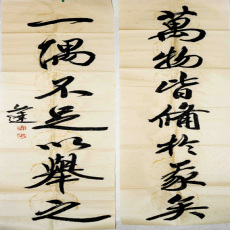 萬物皆備於我矣
一隅不足以舉之